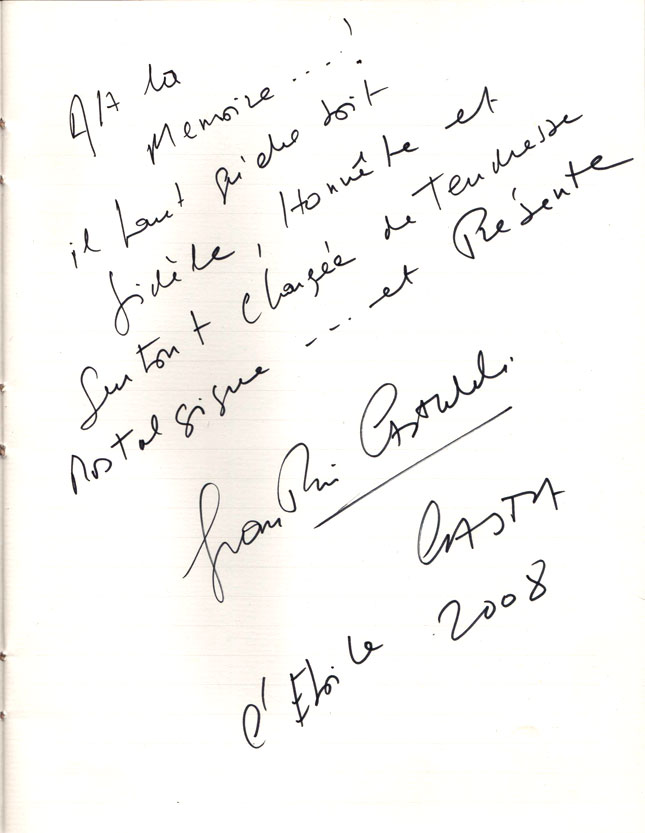 A/A la
Memoire....!
il faut qu'elle soit
fidèle, Honnête et
surtout chargée de Tendresse
Nostalgique --- et Présente
Jean Pierre Castaldi.
CASTA
L'Etoile 2008